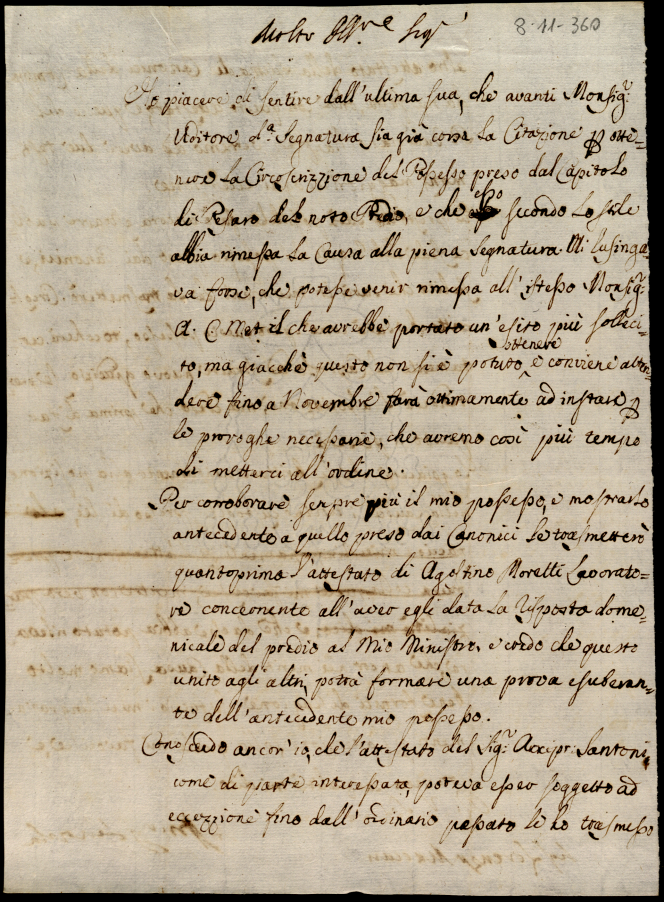 Molto Ill.re Sig.r
8-11-360
Ho piacere di sentire dall'ultima sua, che avanti Monsig.r
Uditore d.a Segnatura sia già corsa la Citazione p otte=
nere la Circoscrizzione del Possesso preso dal Capitolo
di Pesaro del noto Predio, e che esso secondo lo stile
abbia rimessa la Causa alla piena Segnatura. Mi lusinga=
va forse, che potesse venir rimessa all'istesso Monsig.r
A. C. Met. il che avrebbe portato un'esito più solleci=
to, ma giacchè questo non si è potuto ottenere e conviene atten=
dere fino a Novembre sarà ottimamente ad instare p
le proroghe necessarie, che avremo così più tempo
di metterci all'ordine.
Per corroborare sempre più il mio possesso, e mostrarlo
antecedente a quello preso dai Canonici le trasmetterò
quantoprima l'attestato di Agostino Morelli Lavorato=
re concernente all'aver egli data la risposta dome=
nicale del predio al Mio Ministro, e credo che questo
unito agli altri, potrà formare una prova esuberan=
te dell'antecedente mio possesso.
Conoscendo ancor'io, che l'attestato del Sig.r Arcipr. Santoni,
come di parte interessata, poteva esser soggetto ad
eccezzione fino dall'ordinario passato le ho trasmesso